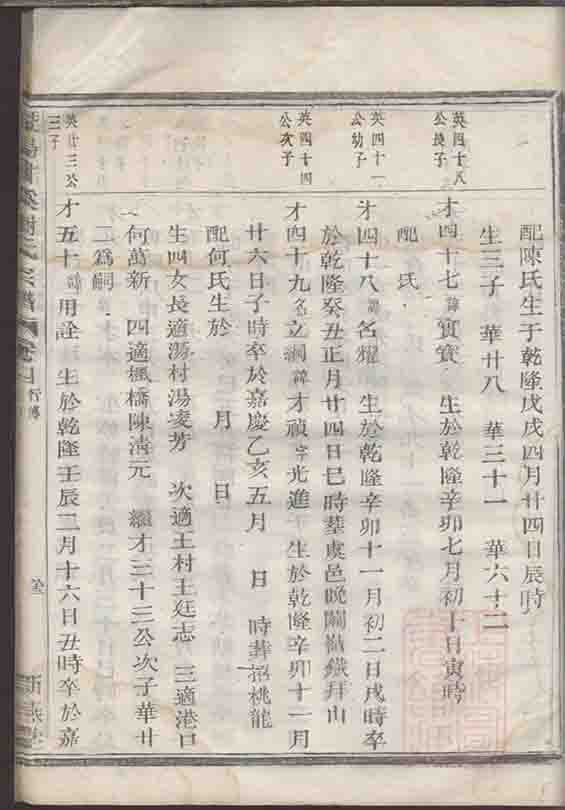 配陳氏生于乾隆戊戌四月廿四日辰時
生三子 華廿八 華三十一 華六十二
英四十八
公長子
才四十七諱寳寳 生於乾隆辛卯七月初十日寅時
配 氏
英四十一
公幼子
才四十八諱名耀 生於乾隆辛卯十一月初二日戌時卒
於乾隆癸丑正月廿四日巳時葬虞邑晚關嶺鐵拜山
英四十四
公次子
才四十九名立綱諱才禎字光進 生於乾隆辛卯十一月
廿六日子時卒於嘉慶乙亥五月 日 時葬招桃龍
配何氏生於 月 日
生四女長適湯村湯凌芳 次適王村王廷志 三適港口
何萬新 四適楓橋陳清元 繼才三十三公次子華廿
二為嗣
英廿三公
三子
才五十諱用詮 生於乾隆壬辰二月十六日丑時卒於嘉
宗譜 行傳